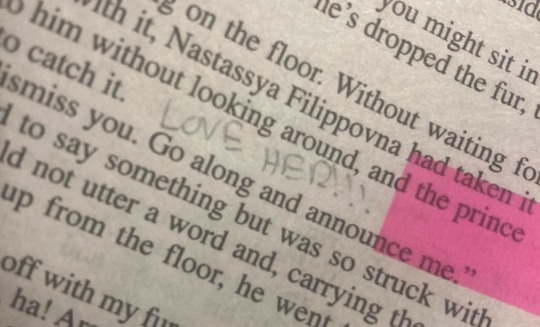 you might sit in
he's dropped the fur, t
g on the floor. Without waiting fo
with it, Nastassya Filippovna had taken it
o him without looking around, and the prince
to catch it.
LOVE HER!!!
ismiss you. Go along and announce me.”
d to say something but was so struck with
ld not utter a word and, carrying the
up from the floor, he went
off with my fur
ha! Ar